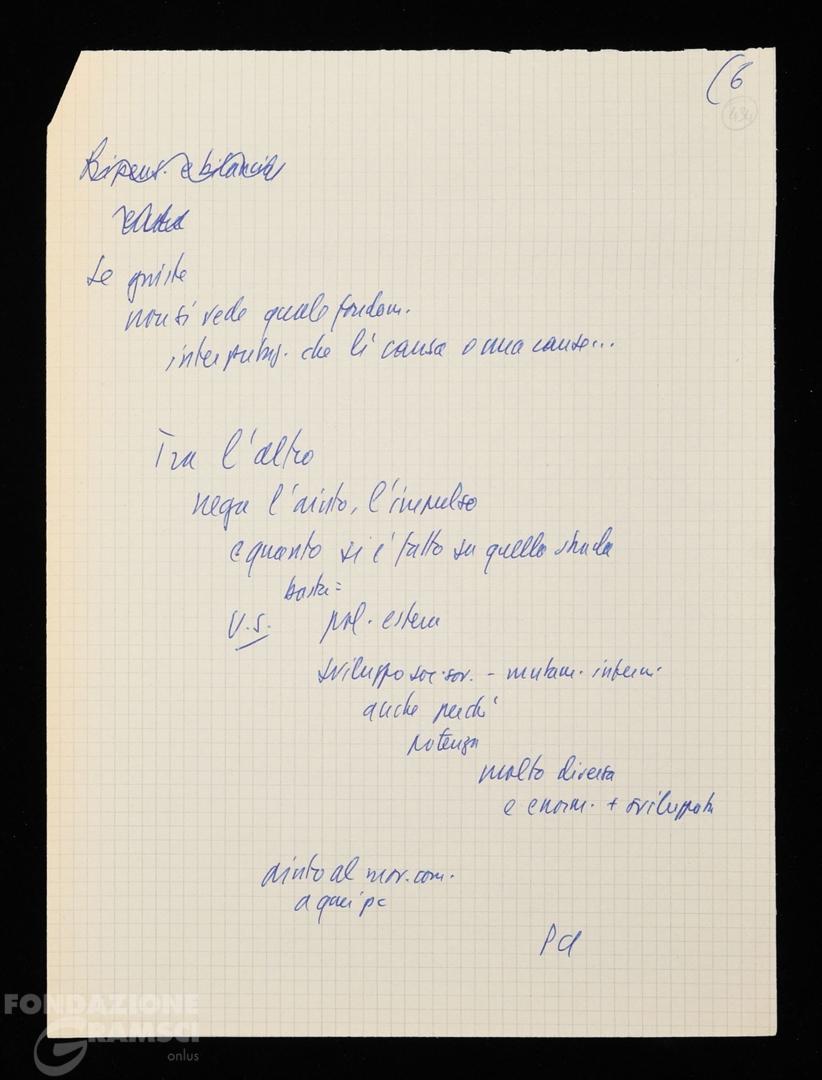 (6
434
Ripens. e bilancia
Le giuste
non si vede quale fondam.
che li causa o una causa...
Tra l'altro
nega l'aiuto, l'impulso
e quanto si è fatto su quella strada
basta =
U.S. pol. estera
sviluppo soc. sov. - mutam. interni
anche perché
potenza
molto diversa
e enorm. + sviluppata
aiuto al mov. com.
a quei pc
FONDAZIONE
GRAMSCI
onlus